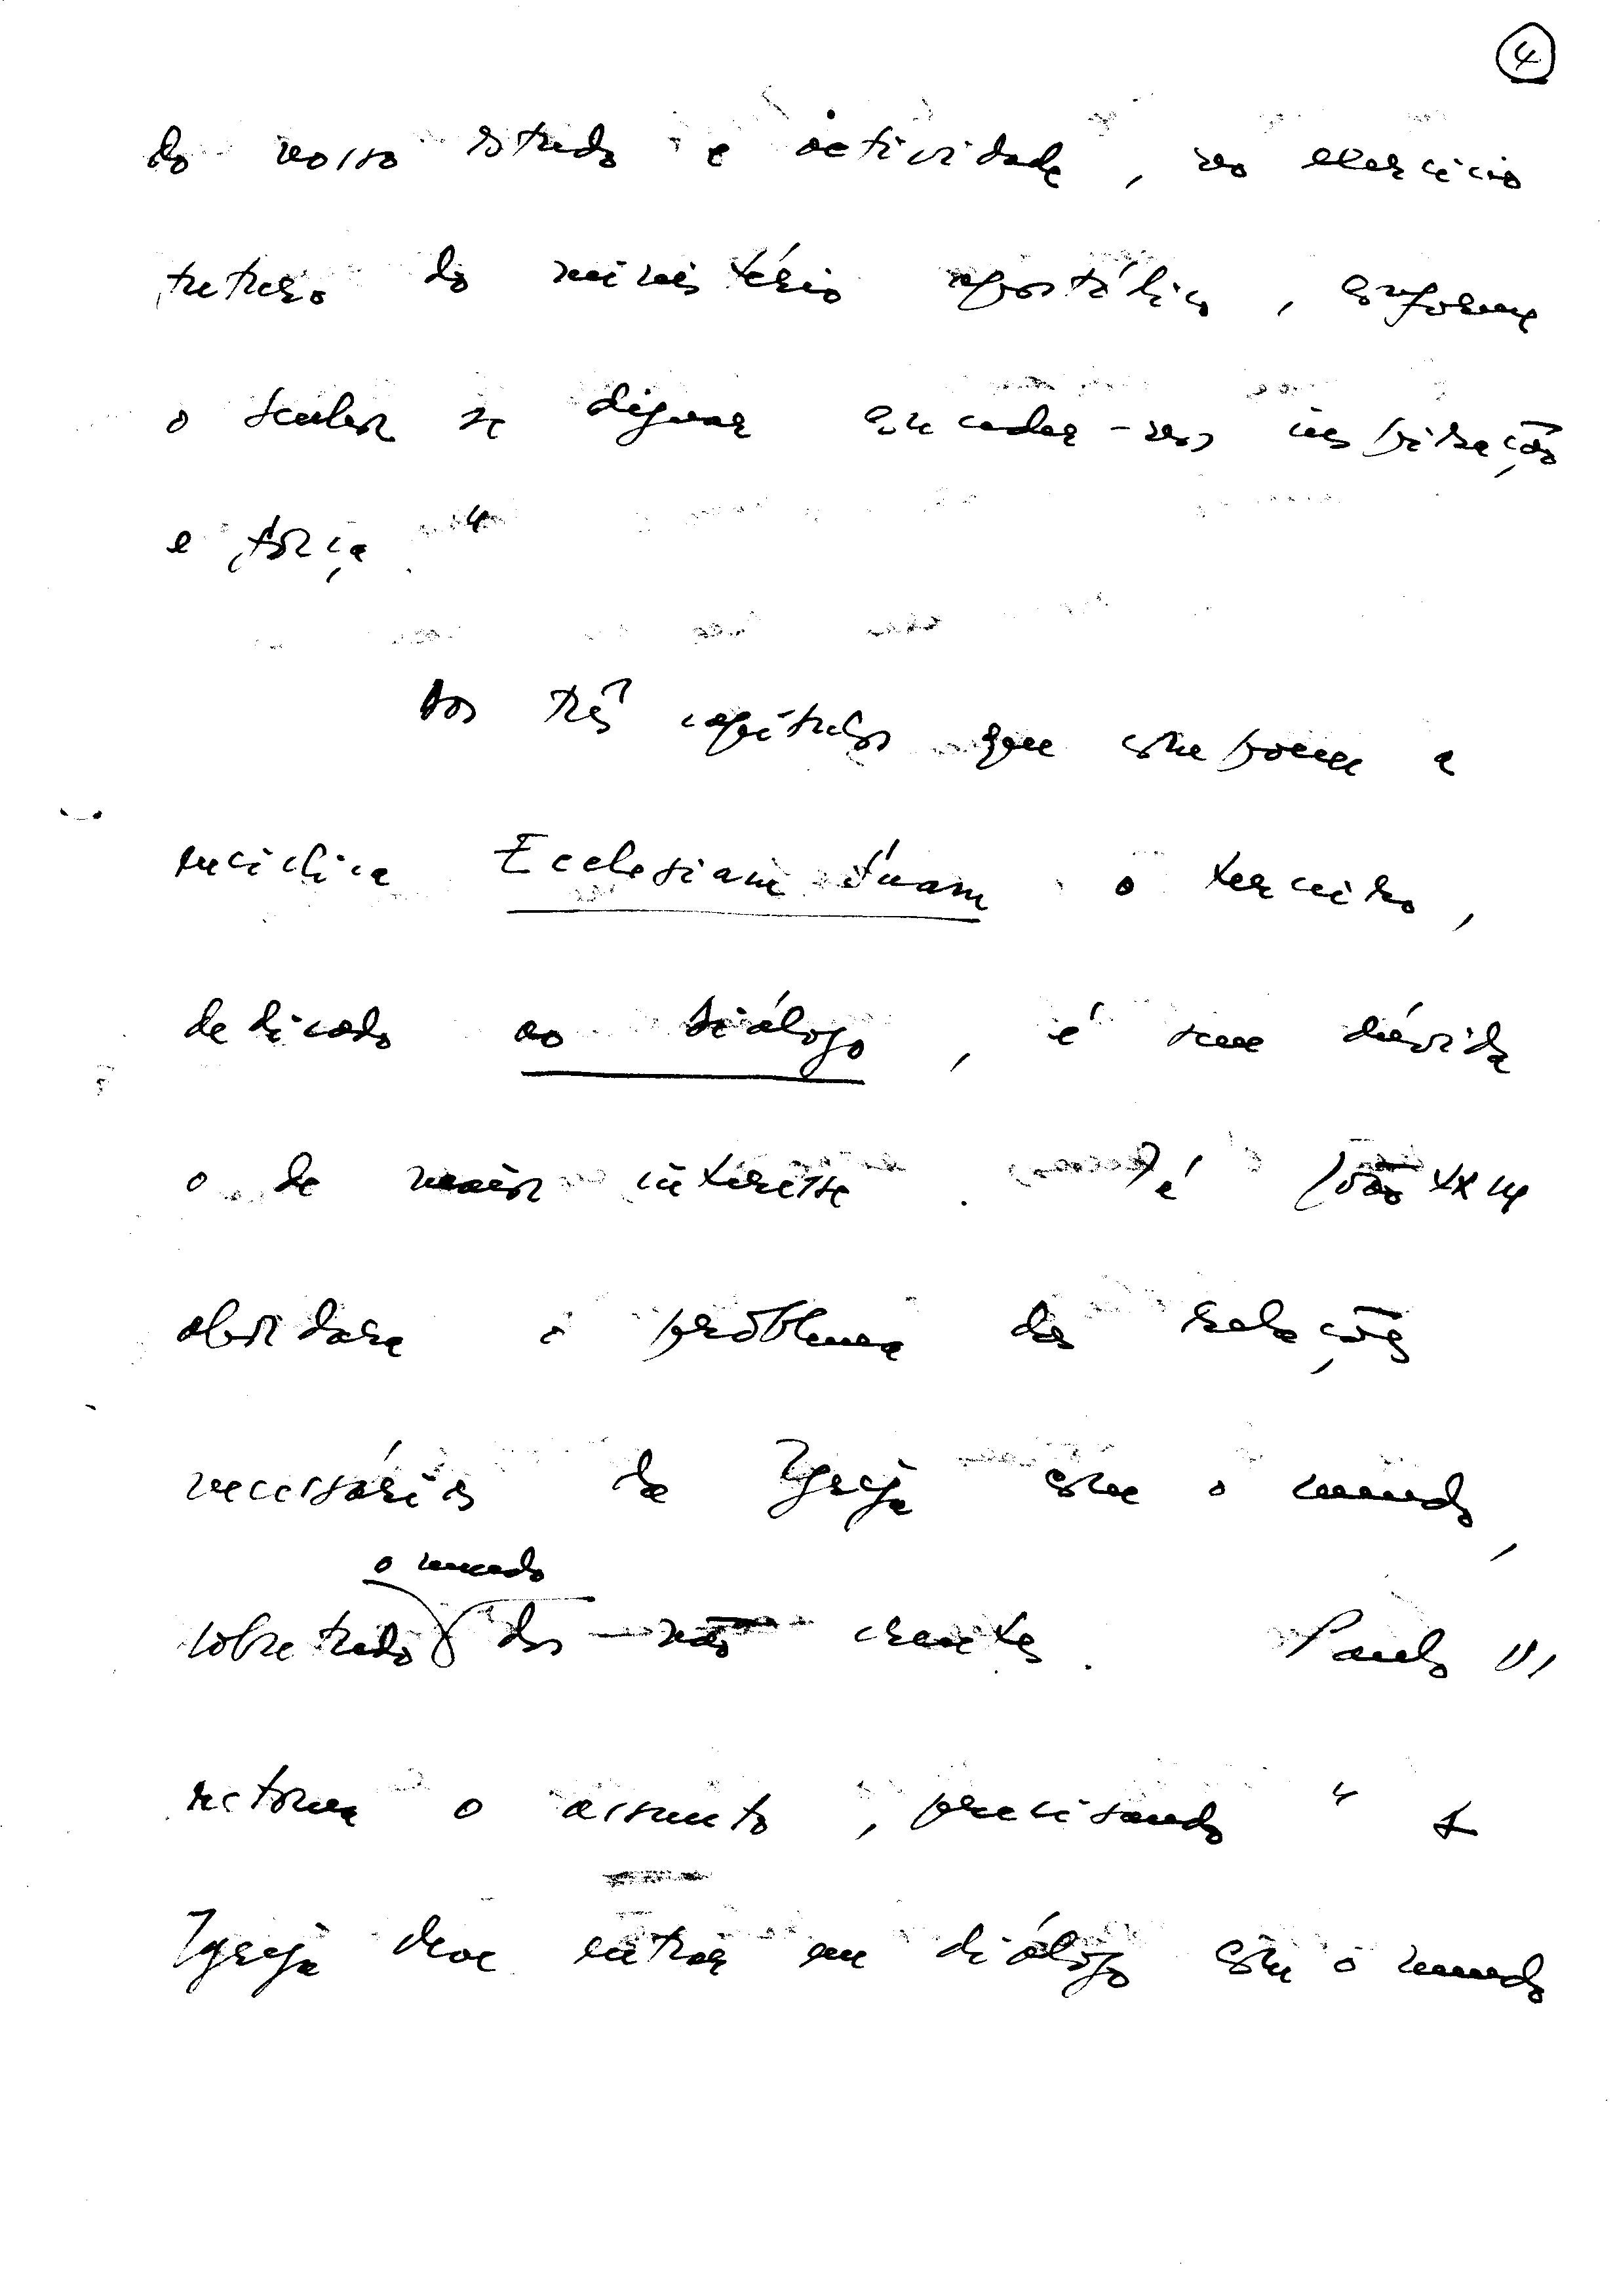 4
do nosso estudo e actividade, no exercício
futuro do ministério apostólico, conforme
o Senhor se dignar conceder-nos inspiração
e força."
Dos três capítulos que compõem a
encíclica Ecclesiam Suam o terceiro,
dedicado ao diálogo, é sem dúvida
o de maior interesse. Já João XXIII
abordara o problema das relações
necessárias da Igreja com o mundo,
o mundo
sobretudo dos não crentes. Paulo VI
retoma o assunto, precisando "A
Igreja deve entrar em diálogo com o mundo